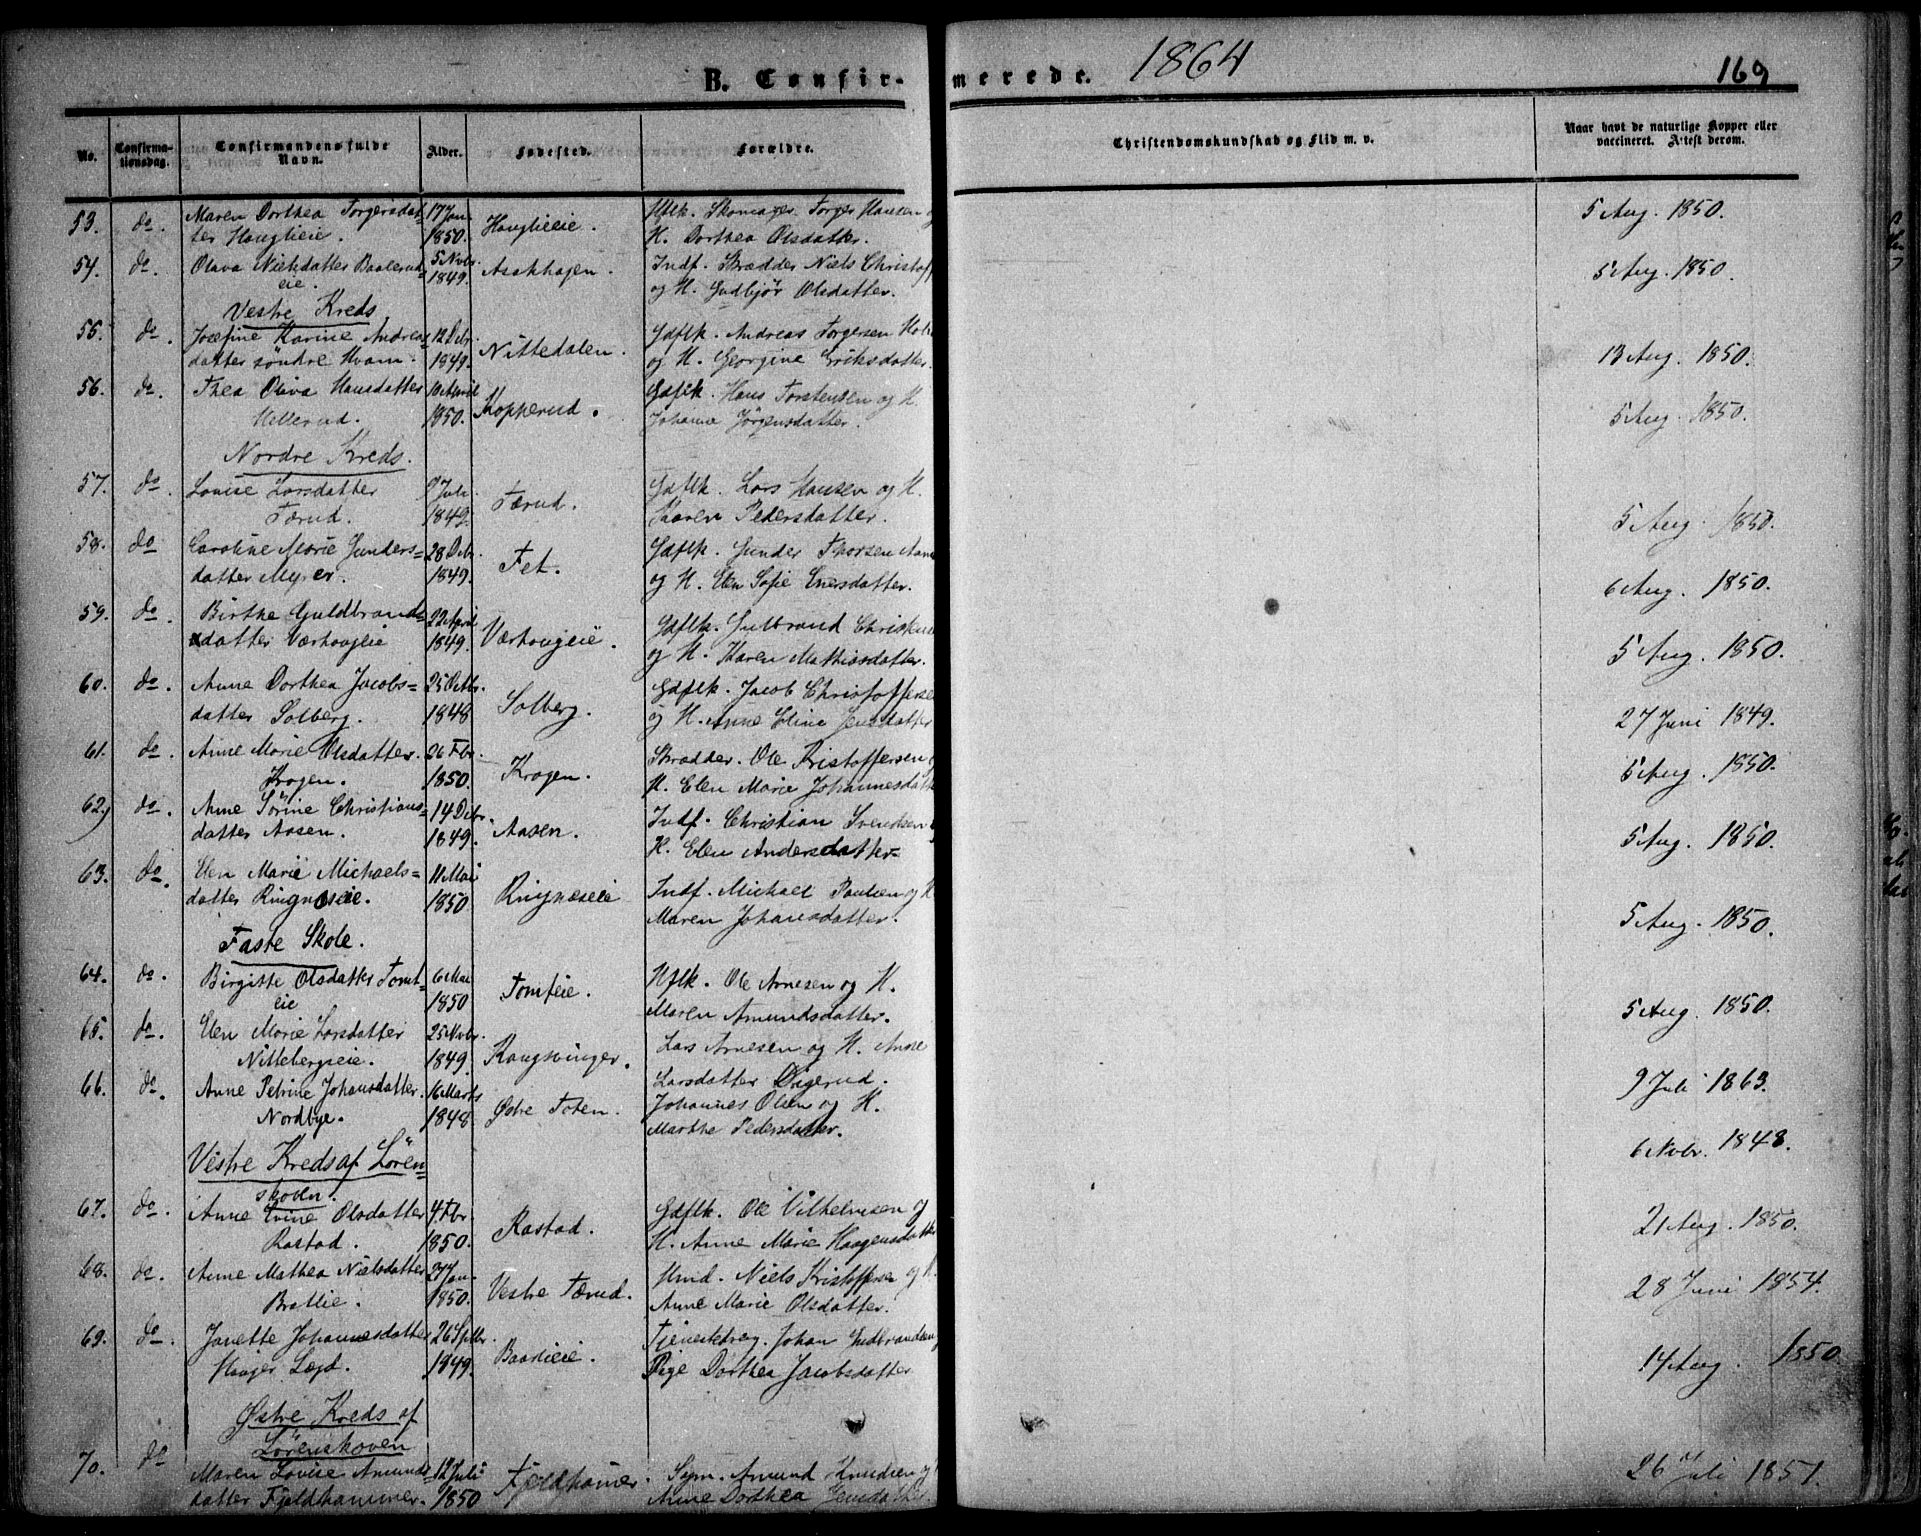 B. Confirmerede. 1864
169
No.
Confirmationsdag.
Confirmandens fulde Navn.
Alder.
Fødested.
Forældre.
Christendomskundskab og Flid m. v.
Naar havt de naturlige Kopper eller vaccineret. Attest derom.
53. do. Maren Dorthea Torgersdat- 17 Jan. Hflk. Skomager Torger Hansen og
ter Hauglieie. 1850. Hauglieeie. H. Dorthea Olsdatter. 5 Aug. 1850.
54. do. Olava Nielsdatter Baalerud- 5 Nvbr. Asakhagen. Indf. Skrædder Niels Christoff
eie. 1849. og H. Gudbjør Olsdatter. 5 Aug. 1850.
Vestre Kreds
55. do. Josefine Karine Andreas- 12 Dcbr. Gdflk. Andreas Torgersen
datter søndre Hvam. 1849. Nittedalen. og H. Georgine Eriksdatter. 13 Aug. 1850.
56. do. Thea Oliva Hansdatter 10 April Gdflk. Hans Torstensen og H.
Hellerud. 1850. Kopperud. Johanne Jørgensdatter. 5 Aug. 1850.
Nordre Kreds.
57. do. Louise Larsdatter 9 Juli Gdflk. Lars Hansen og H.
Tærud. 1849. Tærud. Karen Pedersdatter. 5 Aug. 1850.
58. do Caroline Marie Gunders- 28 Dcbr. Gdflk. Gunder Thorsen
datter Myrer. 1849. Fet. og H. Elen Sofie Enersdatter. 6 Aug. 1850.
59. do. Birthe Guldbrands- 22 April Gdflk. Gulbrand
datter Værhougeie 1849. Værhougeie. og H. Karen Mathiasdatter. 5 Aug. 1850.
60. do. Anne Dorthea Jacobs- 25 Octbr. Gdflk. Jacob Christofferse
datter Solberg. 1848 Solberg. og H. Anne Eline Jensdatter 27 Juni 1849.
61. do. Anne Marie Olsdatter. 26 Fbr. Skrædder. Ole Kristoffersen
Krogen. 1850. Krogen. H. Elen Marie Johannesdatt 5 Aug. 1850.
62. do. Anne Sørine Christians- 14 Dcbr. Indf. Christian Svendsen
datter Aasen. 1849. Aasen. H. Elen Andersdatter 5 Aug. 1850.
63. do. Elen Marie Michaels- 11 Mai Indf. Michael Paulsen og H
datter Ringnæseie. 1850 Ringnæseie Maren Johansdatter. 5 Aug. 1850.
Faste Skole.
64. do. Birgitte Olsdatter Tomt- 6 Mai Hflk. Ole Arnesen og H.
eie 1850 Tomteie. Maren Amundsdatter. 5 Aug. 1850.
65. do. Elen Marie Larsdatter 25 Nvbr. Lars Arnesen og H. Anne
Nittebergseie. 1849. Kongsvinger. Larsdatter 9 Juli 1863.
66. do. Anne Petrine Johansdatter. 16 Marts Johannes Olsen og H.
Nordbye. 1848 Østre Toten. Marthe Pedersdatter. 6 Nvbr. 1848.
Vestre Kreds af Lören-
skoven.
67. do. Anne Olsdatter 4 Fbr. Gdflk. Ole Vilhelmsen og
Rastad. 1850. Rastad. H. Anne Marie Haagensdatt 21 Aug. 1850.
68. do. Anne Mathea Nielsdatter 27 Jan. Hmd. Niels Kristoffersen og H.
Bratlie. 1850. Vestre Tærud. Anne Marie Olsdatter. 28 Juni 1854.
69. do Janette Johannesdatter 26 Sptbr. Tjenestedrog. Johan Gudbrandsen
Løgd. 1849. Baaslieie. Pige Dorthea Jacobsdatter 14 Aug. 1850.
Østre Kreds af
Lörenskoven
70. do Maren Lovise Amunds- 12 Juli Fjeldhamer. Sgm. Amund Knudsen og
datter Fjeldhammer. 1850 Anne Dorthea Jensdatter 26 Juli 1851.